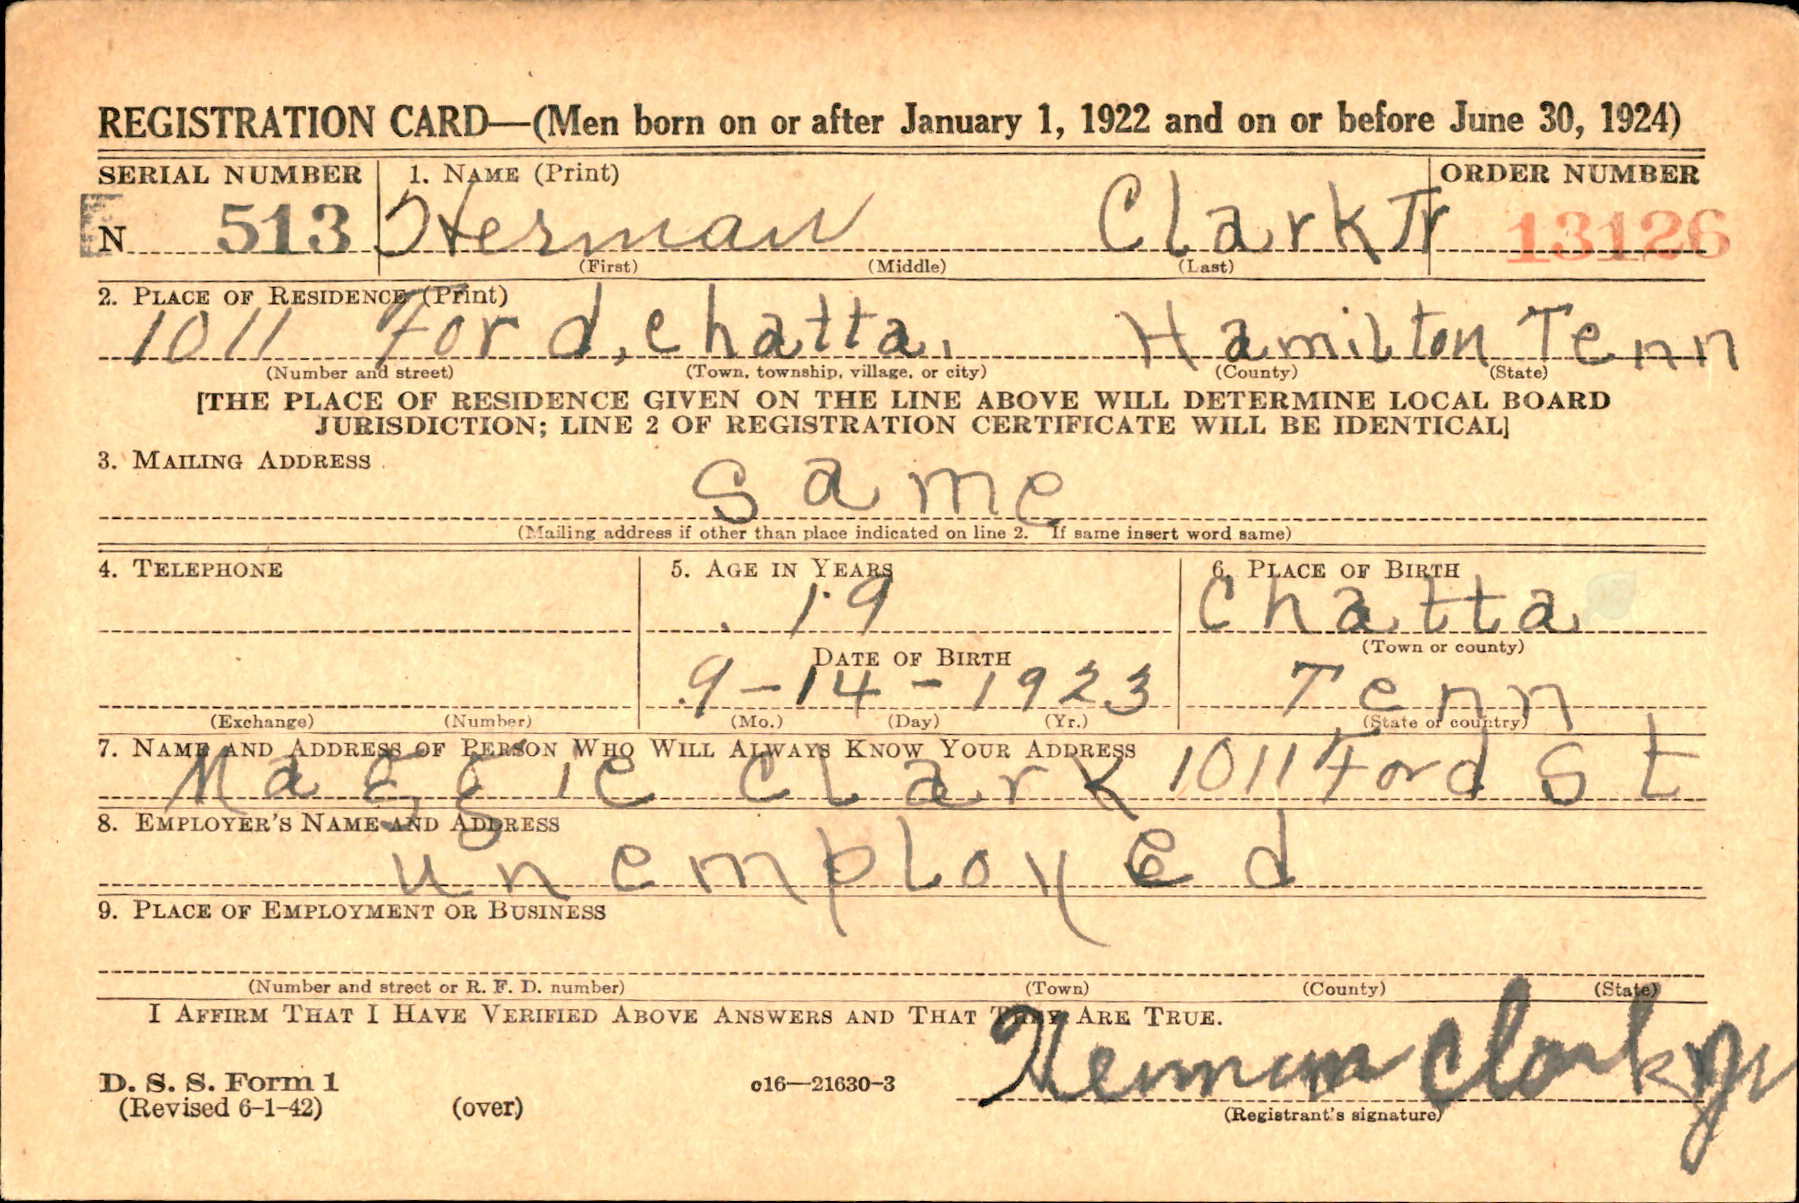 REGISTRATION CARD—(Men born on or after January 1, 1922 and on or before June 30, 1924)
SERIAL NUMBER 1. NAME (Print) ORDER NUMBER
N 513 Herman Clark Jr 13126
(First) (Middle) (Last)
2. PLACE OF RESIDENCE (Print)
1011 Ford, Chatta, Hamilton Tenn
(Number and street) (Town, township, village, or city) (County) (State)
[THE PLACE OF RESIDENCE GIVEN ON THE LINE ABOVE WILL DETERMINE LOCAL BOARD
JURISDICTION; LINE 2 OF REGISTRATION CERTIFICATE WILL BE IDENTICAL]
3. MAILING ADDRESS
Same
(Mailing address if other than place indicated on line 2. If same insert word same)
4. TELEPHONE 5. AGE IN YEARS 6. PLACE OF BIRTH
19 Chatta
(Town or county)
DATE OF BIRTH
9-14-1923 Tenn
(Exchange) (Number) (Mo.) (Day) (Yr.) (State or country)
7. NAME AND ADDRESS OF PERSON WHO WILL ALWAYS KNOW YOUR ADDRESS
Maggie Clark 1011 Ford St
8. EMPLOYER'S NAME AND ADDRESS
unemployed
9. PLACE OF EMPLOYMENT OR BUSINESS
(Number and street or R. F. D. number) (Town) (County) (State)
I AFFIRM THAT I HAVE VERIFIED ABOVE ANSWERS AND THAT THEY ARE TRUE.
Herman Clark Jr
D. S. S. Form 1 c16—21630-3
(Revised 6-1-42) (over) (Registrant's signature)